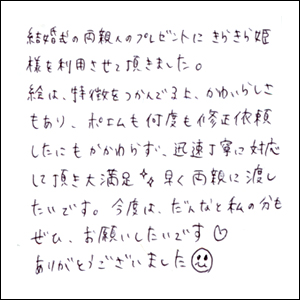 結婚式の両親へのプレゼントにきらきら姫
様を利用させて頂きました。
絵は、特徴をつかんでる上、かわいらしさ
もあり、ポエムも何度も修正依頼
したにもかかわらず、迅速丁寧に対応
して頂き大満足✨早く両親に渡し
たいです。今度は、だんなと私の分も
ぜひ、お願いしたいです♡
ありがとうございました☺